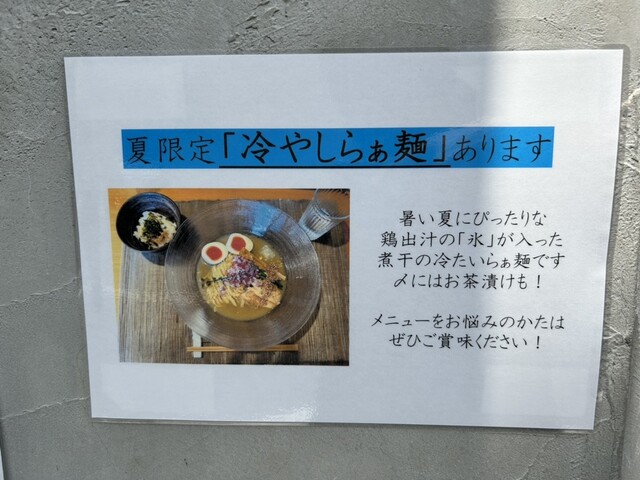 夏限定「冷やしらぁ麺」あります
暑い夏にぴったりな
鶏出汁の「氷」が入った
煮干の冷たいらぁ麺です
〆にはお茶漬けも！
メニューをお悩みのかたは
ぜひご賞味ください！